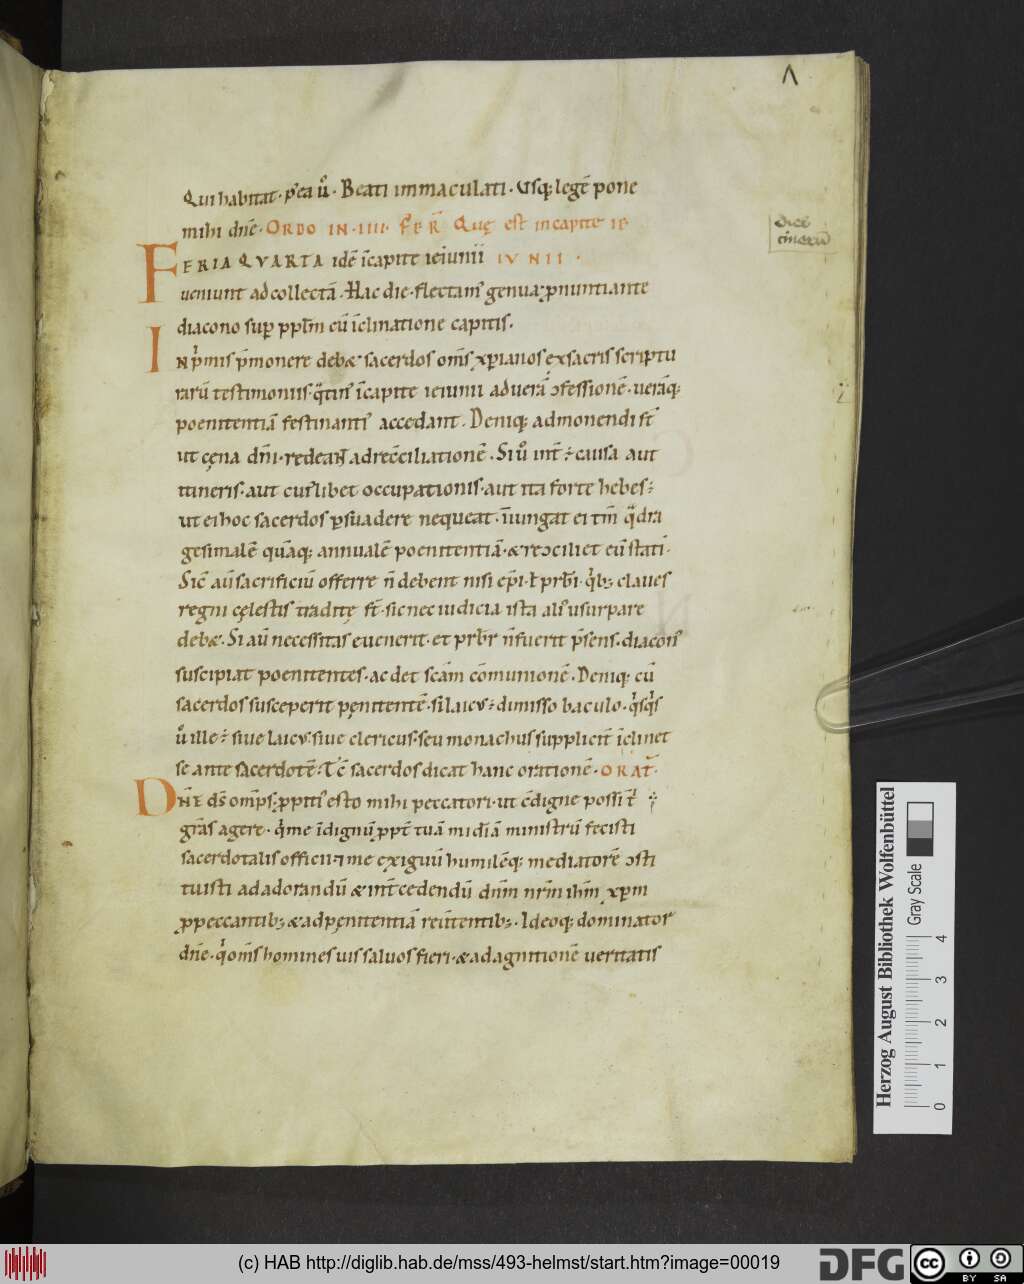 Λ
Qui habitat · p̄ea ů · Beati immaculati · Usq; legē pone
mihi dn̄e · ORDO IN · IIII · FER̄ Quę est in capite ie
FERIA QVARTA idē ı̄capite ieiunii IVNII ·
ueniunt ad collectā · Hac die · flectam' genua; p̱nuntiante
diacono sup̱ pp̄lm cū ı̄clinatione capitis.
diēs
cinerū
INp̄mis p̄monere debæ sacerdos om̄s xp̄ianos ex sacris scriptu
rarū testimoniis · q̄tin' ı̄capite ieiunii ad uerā ɔfessionē · uerāq;
poenitentiā festinanti' accedant. Deniq; admonendi st̄
ut cęna dn̄i · redeant ad recc̄iliationē. Si ů int̄ ÷ causa aut
itineris · aut cui'libet occupationis · aut ita forte hebes ÷
ut ei hoc sacerdos p̱suadere nequeat · ı̄iungat ei tm̄ q̄dra
gesimalē quāq; annualē poenitentiā · & reɔciliet eū statī ·
Sic̄ aū sacrificiū offerre n̄ debent nisi ep̄i · ł prb̄ri · q̇b; claues
regni cęlestis traditę st̄ · sic nec iudicia ista alii usurpare
debæ · Si aū necessitas euenerit · et prb̄r n̄ fuerit p̄sens · diacon'
suscipiat poenitentes · ac det scām cōmunionē · Deniq; cū
sacerdos susceperit pęnitentē · si laicus ÷ dimisso baculo · q̇sq̇s
ů ille ÷ siue laicus siue clericus · seu monachus supplicit̄ ı̄clinet
se ante sacerdotē : Tc̄ sacerdos dicat hanc orationē · ORAT̄ ·
DN̄E ds̄ omp̄s; p̱piti' esto mihi peccatori · ut c̄digne possi t'
gr̄as agere · q̇ me ı̄dignū p̱pt̄ tuā mı̄diā ministrū fecisti
sacerdotalis officii · ⁊ me exiguū humilēq; mediatorē ɔsti
tuisti ad adorandū & int̄cedendū dn̄m nr̄m ihm̄ xp̄m
p̱ peccantib; & ad pęnitentiā reu̅tentib; · Ideoq; dominator
dn̄e · q̇ om̄s homines uis saluos fieri · & ad agnitionē ueritatis
Herzog August Bibliothek Wolfenbüttel
Gray Scale
0 1 2 3 4
(c) HAB http://diglib.hab.de/mss/493-helmst/start.htm?image=00019
DFG
cc
BY SA